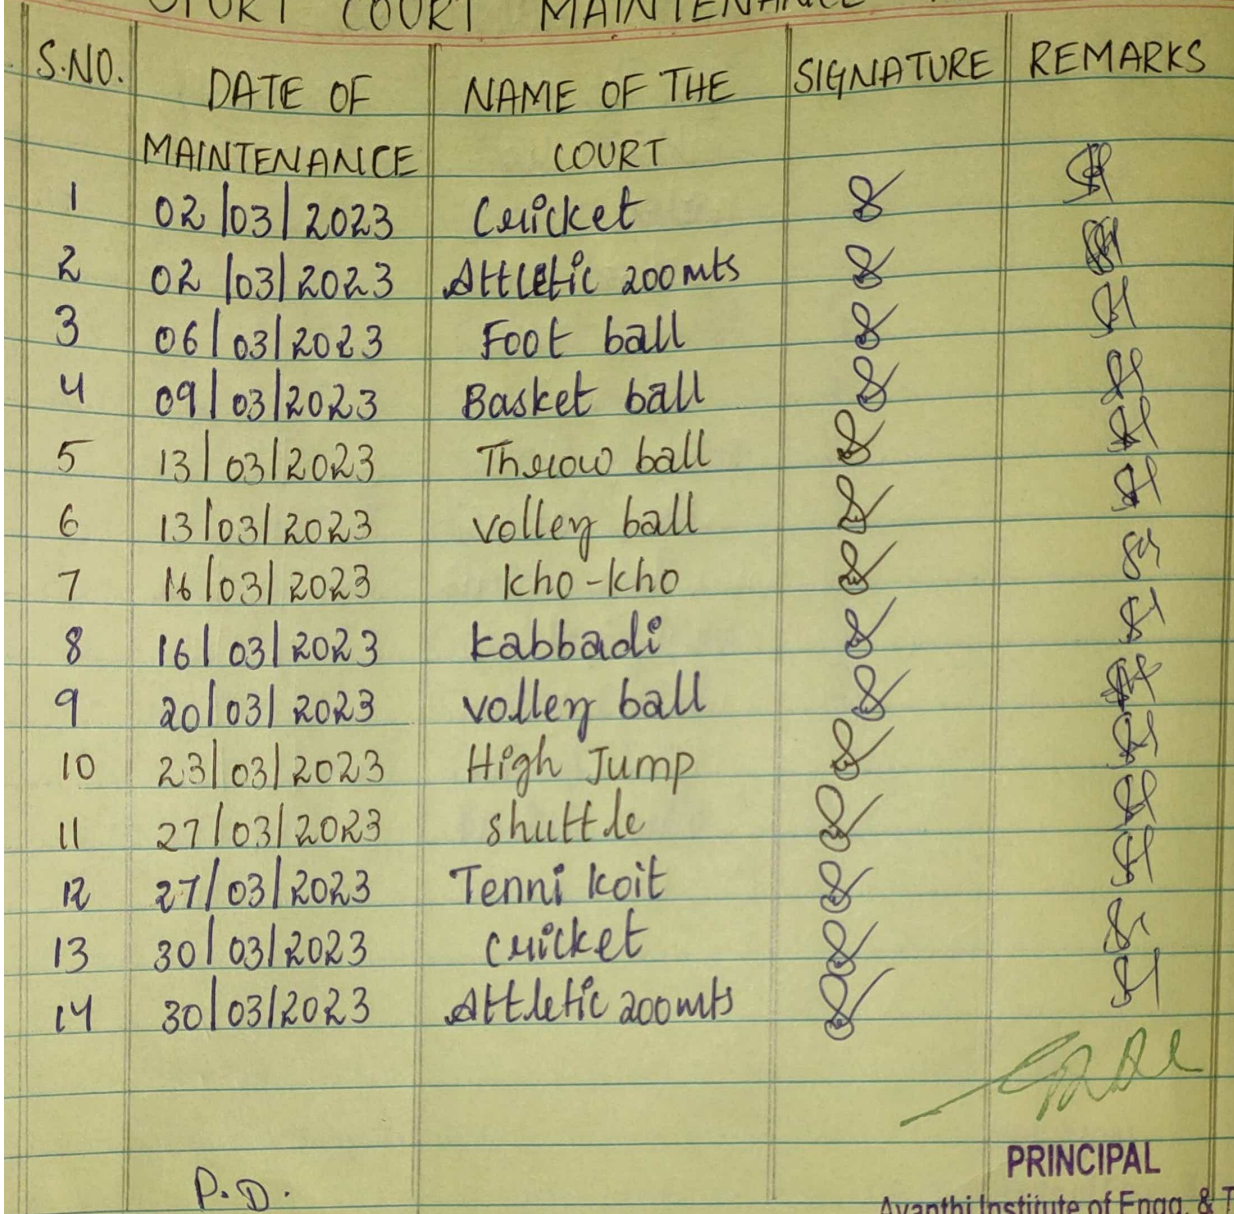 COURT MAINTENANCE
S.NO. DATE OF MAINTENANCE NAME OF THE COURT SIGNATURE REMARKS
1 02/03/2023 Cricket
2 02/03/2023 Attletic 200mts
3 06/03/2023 Foot ball
4 09/03/2023 Basket ball
5 13/03/2023 Throw ball
6 13/03/2023 volley ball
7 16/03/2023 kho-kho
8 16/03/2023 kabbadi
9 20/03/2023 volley ball
10 23/03/2023 High Jump
11 27/03/2023 shuttle
12 27/03/2023 Tenni koit
13 30/03/2023 cricket
14 30/03/2023 Attletic 200mts
P.D.
PRINCIPAL
Avanthi Institute of Engg. &